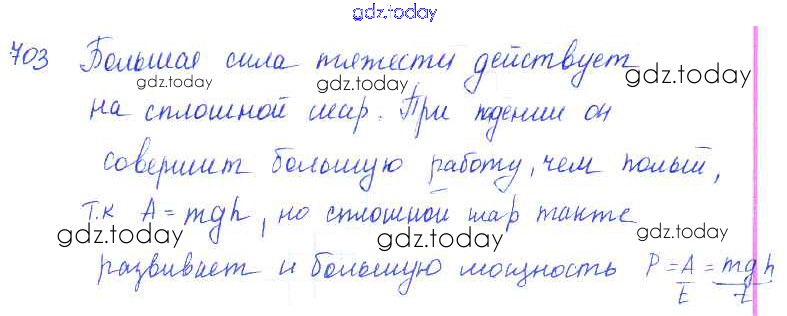 gdz.today
703 Большая сила тяжести действует
gdz.today gdz.today gdz.today
на сплошной шар. При падении он
совершит большую работу, чем полый,
т.к A = mgh, но сплошной шар также
gdz.today gdz.today gdz.today
развивает и большую мощность P = A/t = mgh/t